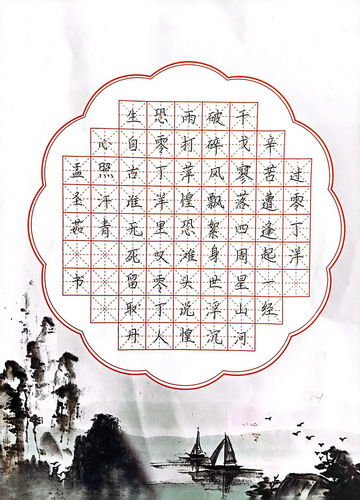 过零丁洋
辛苦遭逢起一经
干戈寥落四周星山河
破碎风飘絮身世浮沉
雨打萍惶恐滩头说惶
恐零丁洋里叹零丁人
生自古谁无死留取丹
心照汗青
孟圣茹书